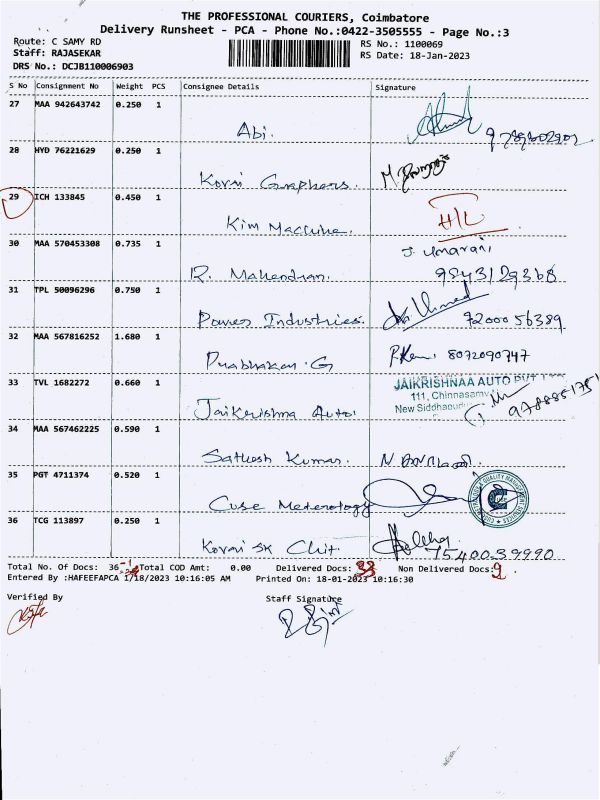 THE PROFESSIONAL COURIERS, Coimbatore
Delivery Runsheet - PCA - Phone No.:0422-3505555 - Page No.:3
Route: C SAMY RD RS No.: 1100069
Staff: RAJASEKAR RS Date: 18-Jan-2023
DRS No.: DCJB110006903
S No Consignment No Weight PCS Consignee Details Signature
27 MAA 942643742 0.250 1
Abi.
28 HYD 76221629 0.250 1
Kovai Graphers.
29 ICH 133845 0.450 1
Kim Machine. H/L
30 MAA 570453308 0.735 1 J. Umarani
R. Mahendran. 9843129368
31 TPL 50096296 0.750 1
Power Industries. 7200056389
32 MAA 567816252 1.680 1
Prabhakar. G 8072090747
33 TVL 1682272 0.660 1 JAIKRISHNAA AUTO
111, Chinnasamy
Jaikrishna Auto. New
34 MAA 567462225 0.590 1
Sathesh Kumar.
35 PGT 4711374 0.520 1
Cube Meterology
36 TCG 113897 0.250 1
Kovai SK Chit 7540039990
Total No. Of Docs: 36 Total COD Amt: 0.00 Delivered Docs: 33 Non Delivered Docs: 9
Entered By :HAFEEFAPCA 1/18/2023 10:16:05 AM Printed On: 18-01-2023 10:16:30
Verified By Staff Signature